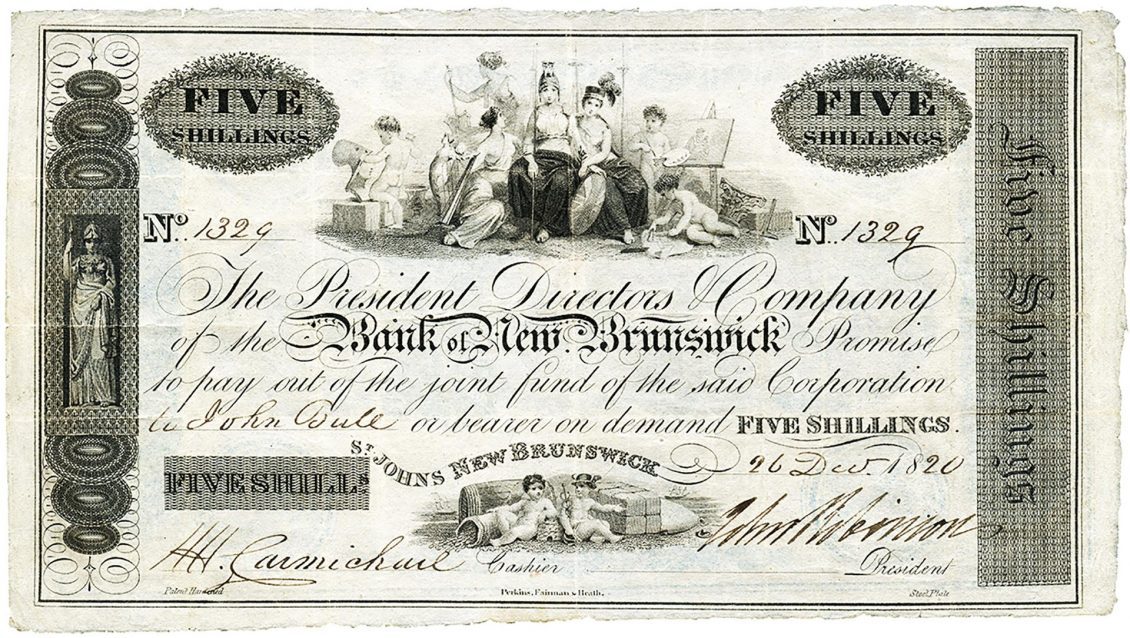 FIVE SHILLINGS
FIVE SHILLINGS
Five Shillings
No. 1329
No. 1329
The President Directors & Company
of the Bank of New Brunswick Promise
to pay out of the joint fund of the said Corporation
to John Bull or bearer on demand FIVE SHILLINGS.
St. JOHNS NEW BRUNSWICK
26 Dec. 1820
FIVE SHILLs
John Robinson
HH. Carmichael Cashier
President
Patent Hardened
Perkins, Fairman & Heath.
Steel Plate